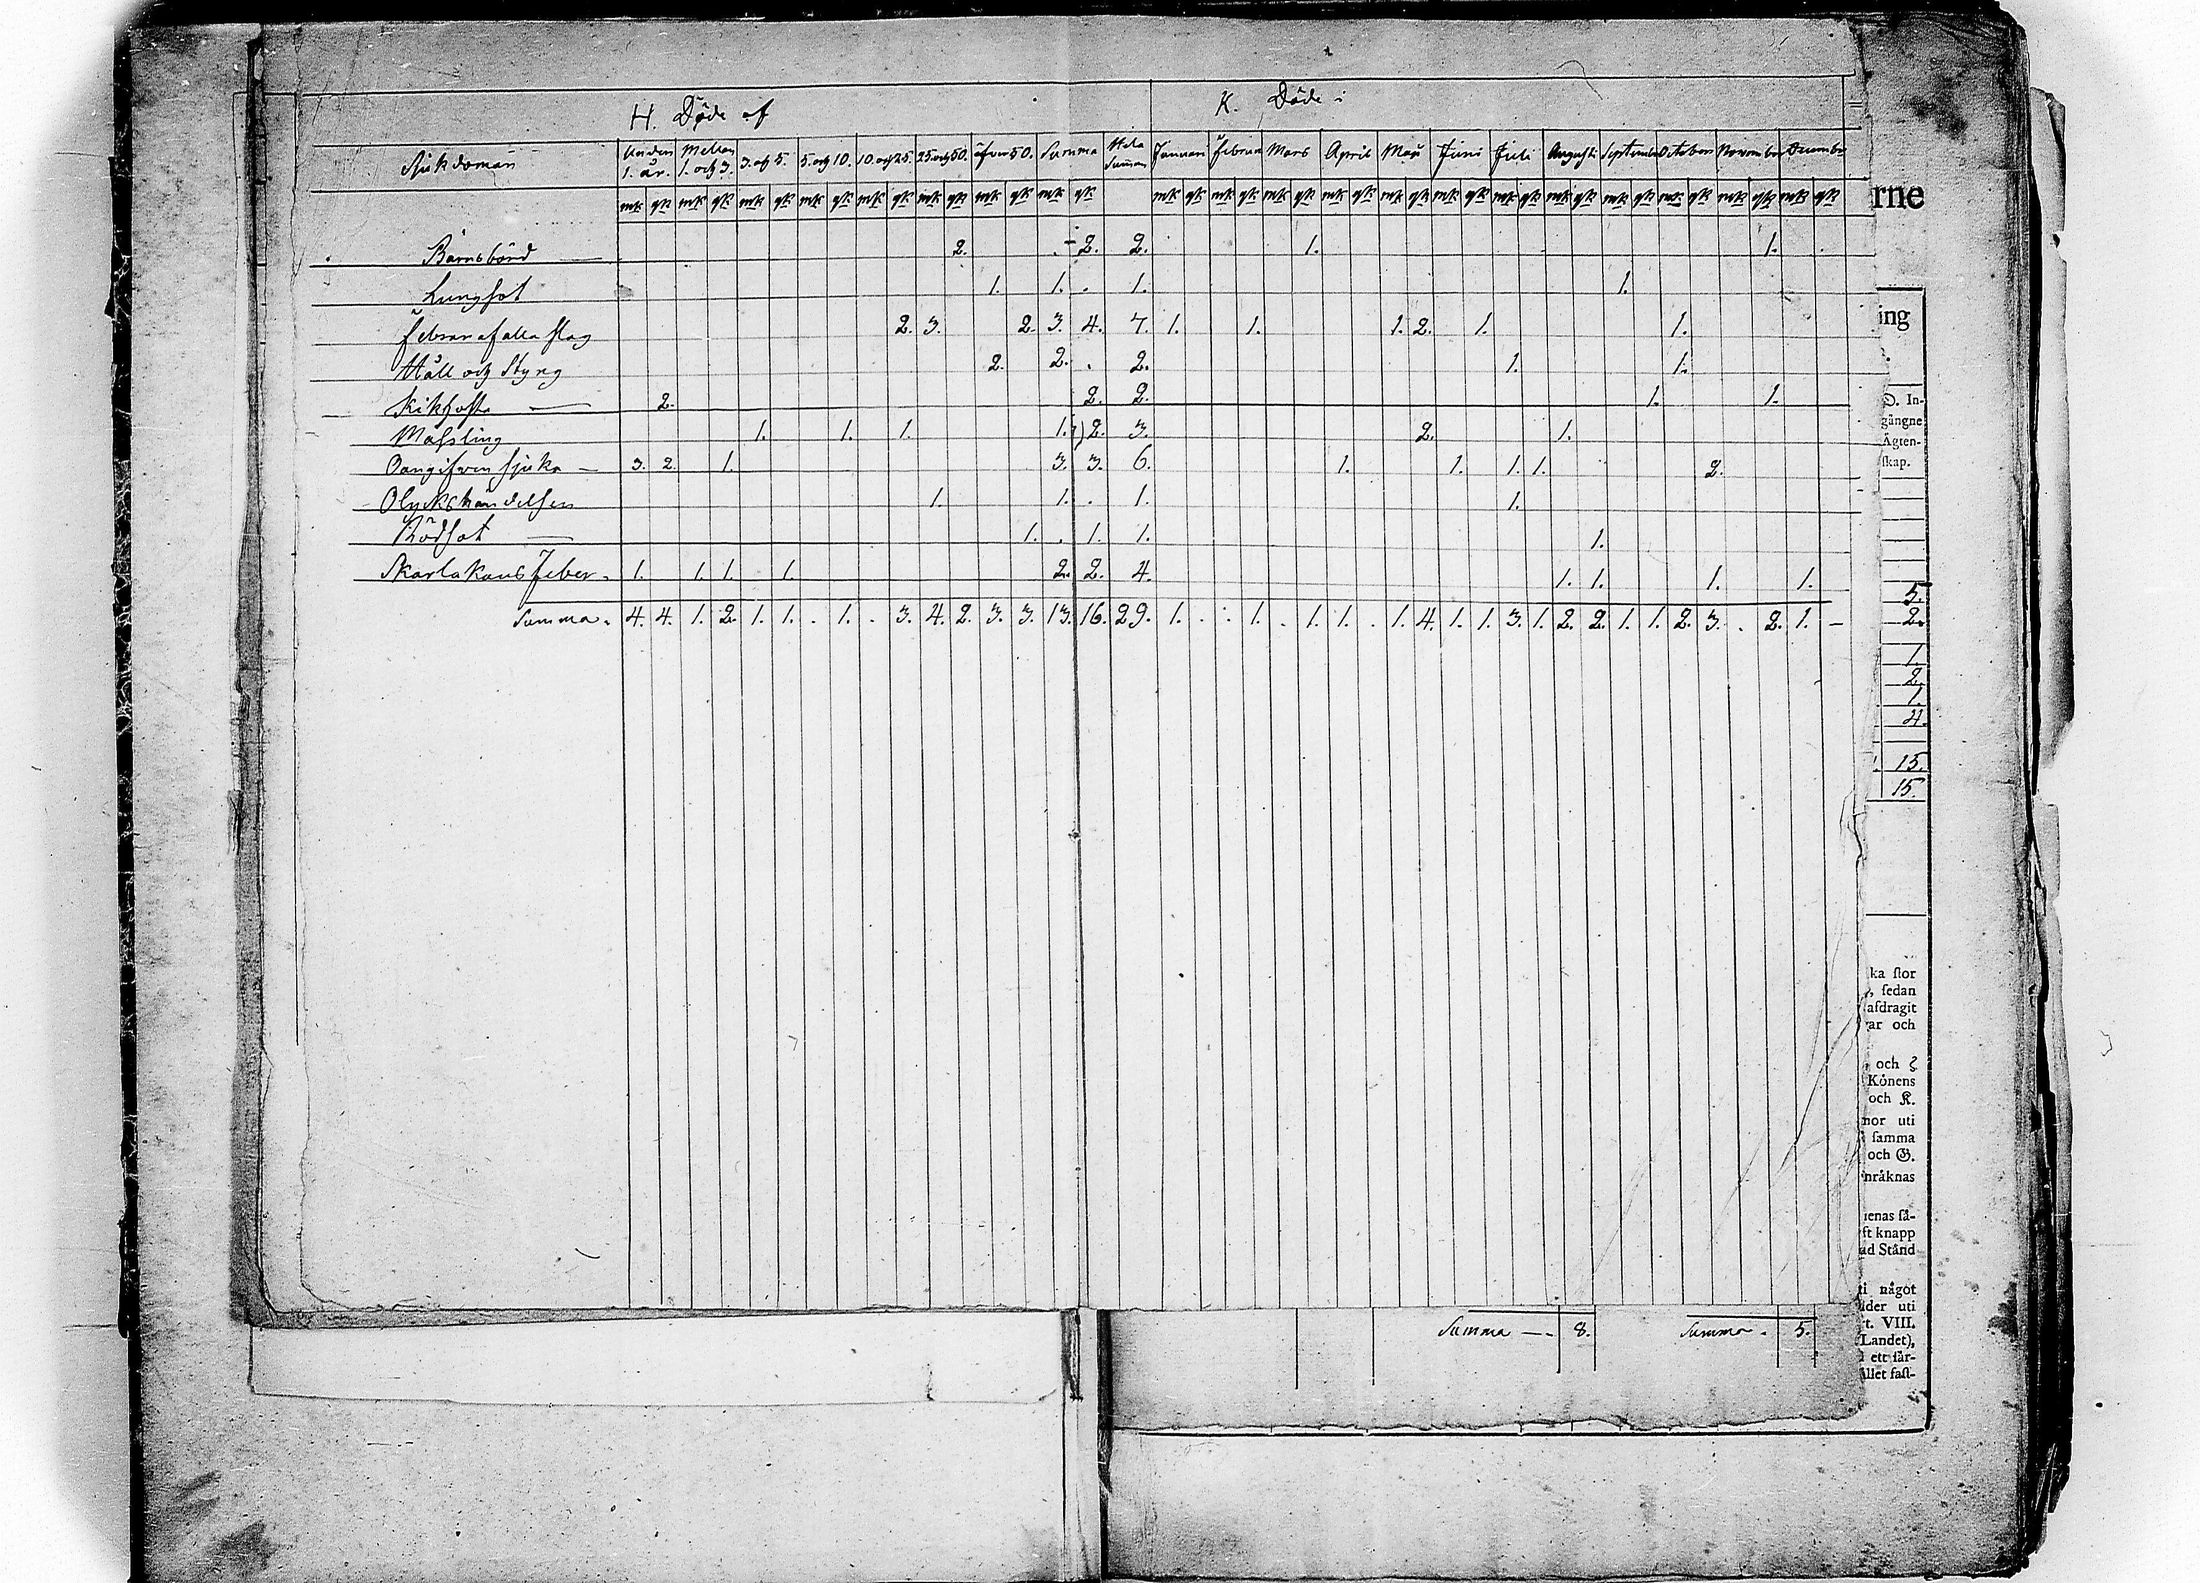 H. Döde af K. Döde i
Sjukdomar Under 1. år. Mellan 1. och 3. 3. och 5. 5. och 10. 10. och 25. 25. och 50. öfver 50. Summa Hela Summan Januari Februari Mars April Maii Junii Julii Augusti September October November December
mk qk mk qk mk qk mk qk mk qk mk qk mk qk mk qk mk qk mk qk mk qk mk qk mk qk mk qk mk qk mk qk mk qk mk qk mk qk mk qk
Barnsbörd — 2. . – 2. 2. 1. 1. .
Lungsot 1. 1. . 1. 1.
Febrar af alla slag 2. 3. 2. 3. 4. 7. 1. 1. 1. 2. 1. 1.
Håll och Styng 2. 2. . 2. 1. 1.
Kikhosta — 2. 2. 2. 1. 1.
Mässling 1. 1. 1. 1. 2. 3. 2. 1.
Oangifven sjuka — 3. 2. 1. 3. 3. 6. 1. 1. 1. 1. 2.
Olyckshändelsen 1. 1. . 1. 1.
Rödsot — 1. . 1. 1. 1.
Skarlakans Feber. 1. 1. 1. 1. 2. 2. 4. 1. 1. 1. 1.
Summa. 4. 4. 1. 2. 1. 1. . 1. . 3. 4. 2. 3. 3. 13. 16. 29. 1. . . 1. . 1. 1. . 1. 4. 1. 1. 3. 1. 2. 2. 1. 1. 2. 3. . 2. 1. –
Summa — 8. Summa . 5.
rne
ing
D. In-
gångne
Ägten-
skap.
5.
2.
1.
2.
1.
4.
15.
15.
ka stor
, sedan
afdragit
ar och
och ζ
Könens
och K.
nor uti
samma
och G.
nråknas
ienas så-
st knapp
ad Stånd
ti något
ider uti
t. VIII.
Landet),
ett sär-
ållet fast-